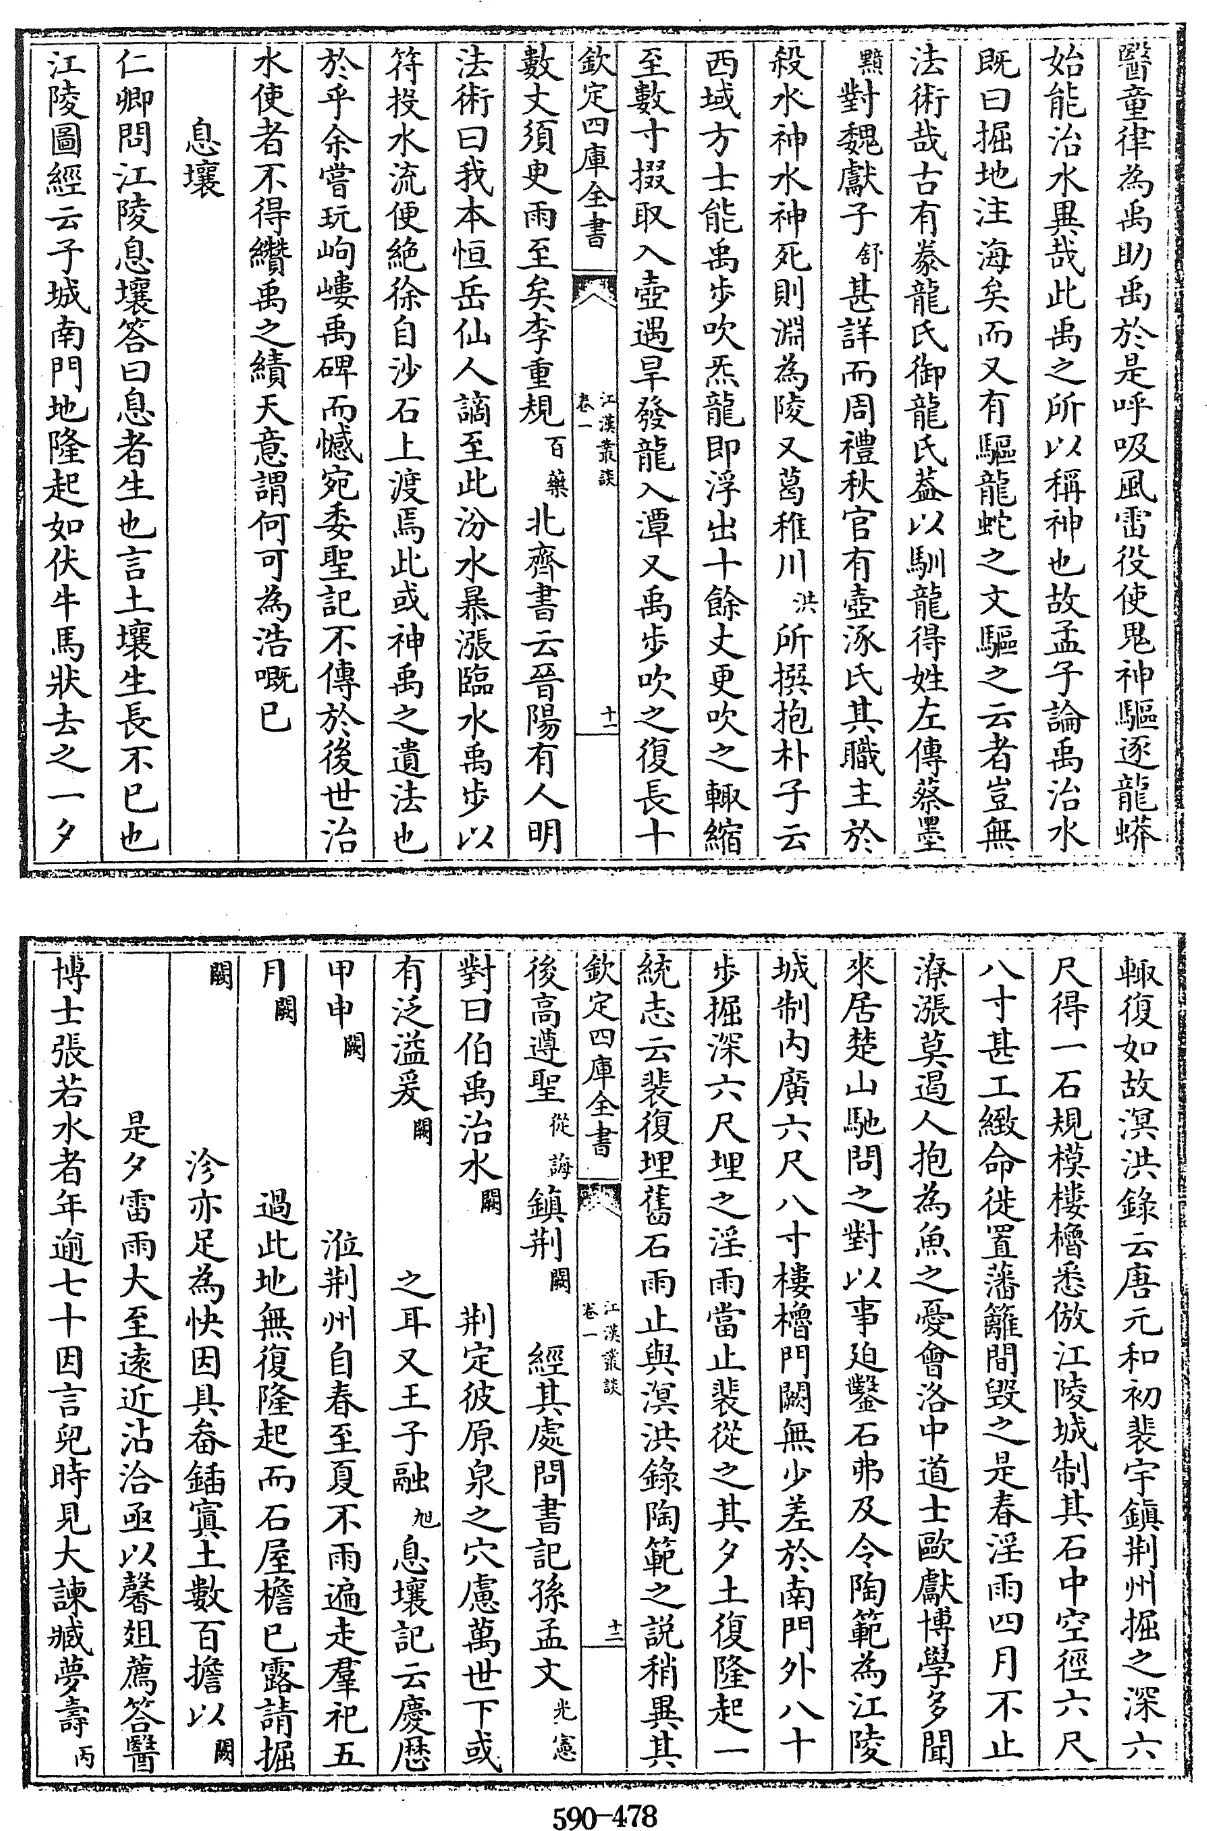 醫童律為禹助禹於是呼吸風雷役使鬼神驅逐龍蟒
始能治水異哉此禹之所以稱神也故孟子論禹治水
既曰掘地注海矣而又有驅龍蛇之文驅之云者豈無
法術哉古有豢龍氏御龍氏葢以馴龍得姓左傳蔡墨
黯對魏獻子舒甚詳而周禮秋官有壺涿氏其職主於
殺水神水神死則淵為陵又葛稚川洪所撰抱朴子云
西域方士能禹步吹炁龍即浮出十餘丈更吹之輙縮
至數寸掇取入壺遇旱發龍入潭又禹步吹之復長十
欽定四庫全書
江漢叢談
卷一
十一
數丈須臾雨至矣李重規百藥北齊書云晉陽有人明
法術曰我本恒岳仙人謫至此汾水暴漲臨水禹步以
符投水流便絶徐自沙石上渡焉此或神禹之遺法也
於乎余嘗玩岣嶁禹碑而憾宛委聖記不傳於後世治
水使者不得纘禹之績天意謂何可為浩嘅已
息壤
仁卿問江陵息壤答曰息者生也言土壤生長不已也
江陵圖經云子城南門地隆起如伏牛馬狀去之一夕
輙復如故溟洪錄云唐元和初裴宇鎮荆州掘之深六
尺得一石規模樓櫓悉倣江陵城制其石中空徑六尺
八寸甚工緻命徙置藩籬間毀之是春淫雨四月不止
潦漲莫遏人抱為魚之憂會洛中道士歐獻博學多聞
來居楚山馳問之對以事廹鑿石弗及令陶範為江陵
城制内廣六尺八寸樓櫓門闕無少差於南門外八十
步掘深六尺埋之淫雨當止裴從之其夕土復隆起一
統志云裴復埋舊石雨止與溟洪錄陶範之説稍異其
欽定四庫全書
江漢叢談
卷一
十二
後高遵聖從誨鎮荆闕經其處問書記孫孟文光憲
對曰伯禹治水闕荆定彼原泉之穴慮萬世下或
有泛溢爰闕之耳又王子融旭息壤記云慶厯
甲申闕涖荆州自春至夏不雨遍走羣祀五
月闕過此地無復隆起而石屋檐已露請掘
闕沴亦足為快因具畚鍤寘土數百擔以闕
是夕雷雨大至遠近沾洽亟以馨俎薦答醫
博士張若水者年逾七十因言兒時見大諫臧夢壽丙
590-478